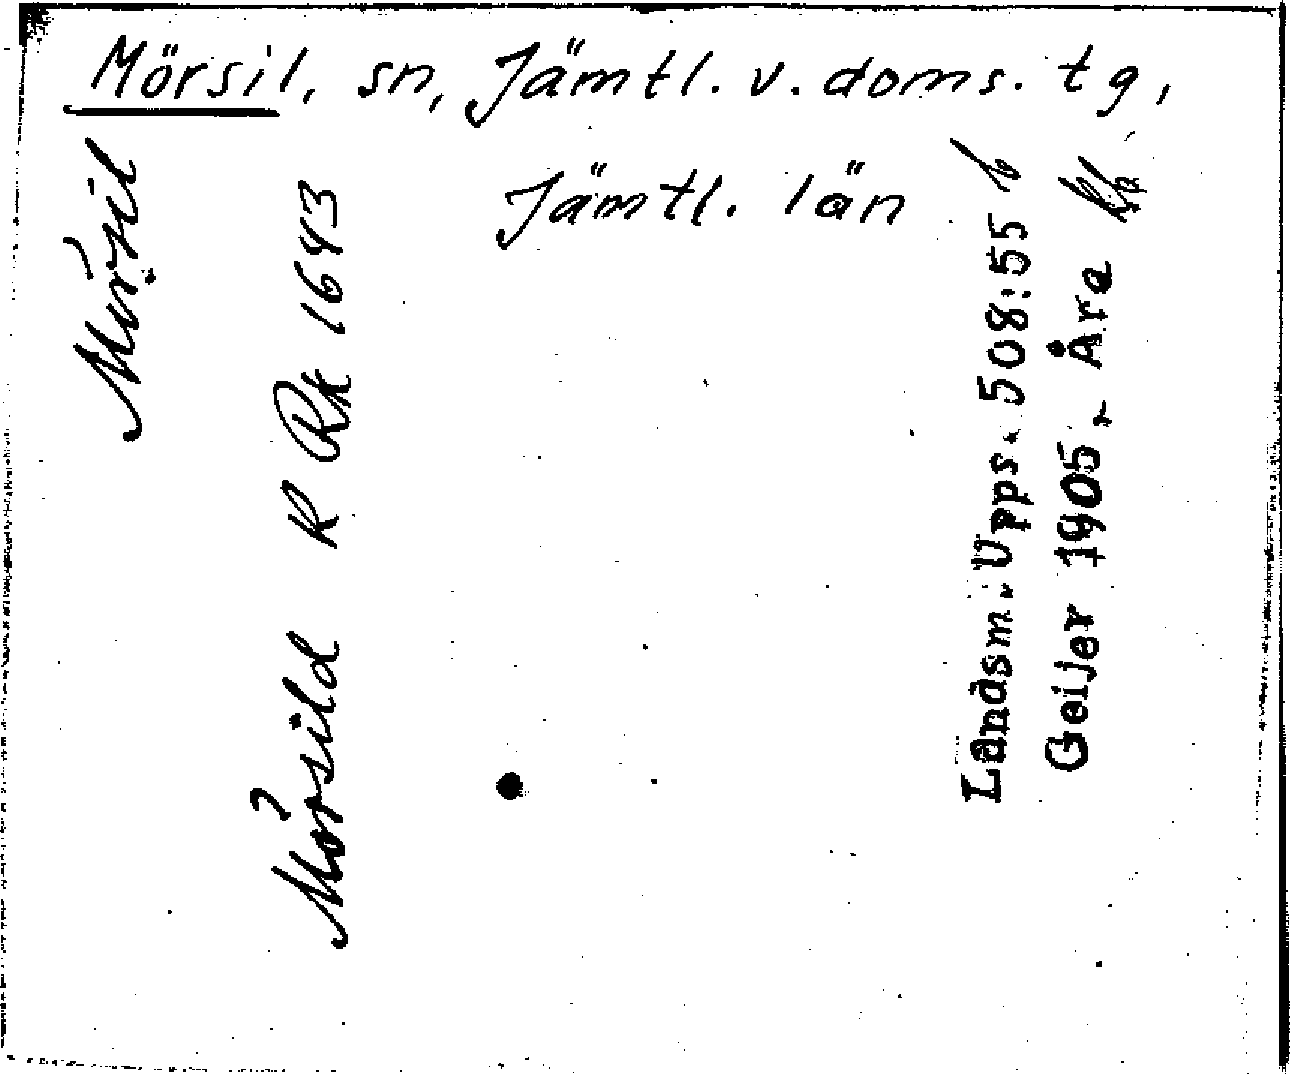 Mörsil, sn, Jämtl. v. doms. tg,
Jämtl. län
Mörsil
Mörsild R Rk 1643
Landsm. Upps. 508:55 b
Geijer 1905, Åre